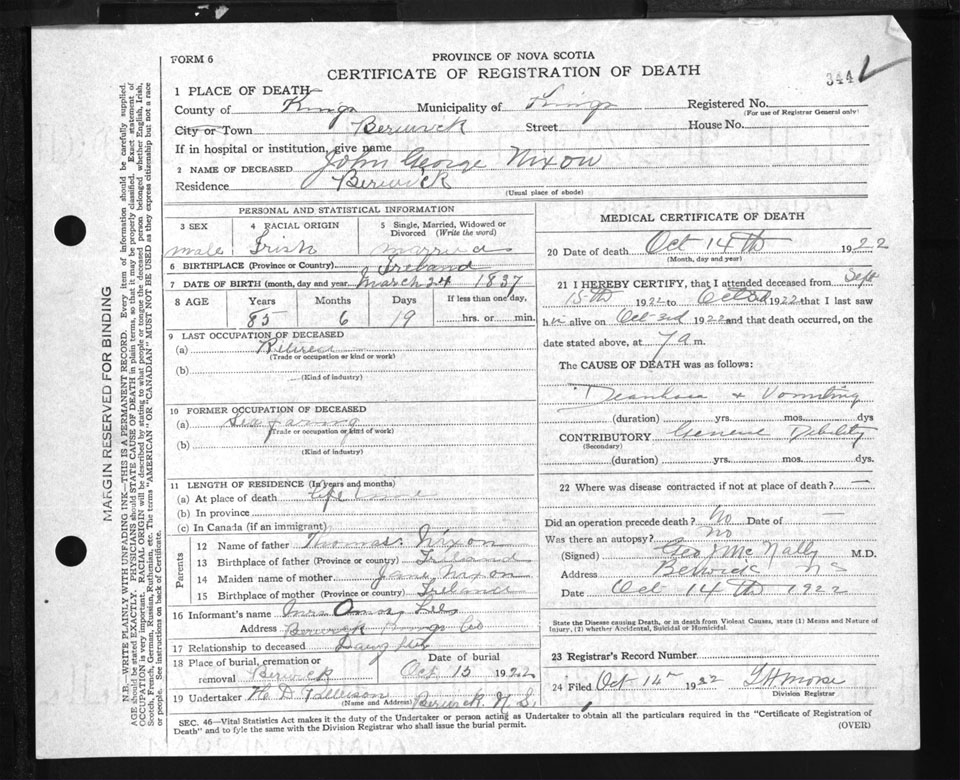 FORM 6
PROVINCE OF NOVA SCOTIA
CERTIFICATE OF REGISTRATION OF DEATH
344
1 PLACE OF DEATH
County of Kings Municipality of Kings Registered No.
(For use of Registrar General only)
City or Town Berwick Street House No.
If in hospital or institution, give name
2 NAME OF DECEASED John George Nixon
Residence Berwick
(Usual place of abode)
PERSONAL AND STATISTICAL INFORMATION
3 SEX 4 RACIAL ORIGIN 5 Single, Married, Widowed or Divorced (Write the word)
male Irish married
6 BIRTHPLACE (Province or Country) Ireland
7 DATE OF BIRTH (month, day and year) March 24 1837
8 AGE Years Months Days If less than one day,
85 6 19 hrs. or min.
9 LAST OCCUPATION OF DECEASED
(a) Retired
(Trade or occupation or kind or work)
(b)
(Kind of industry)
10 FORMER OCCUPATION OF DECEASED
(a) Sea faring
(Trade or occupation or kind or work)
(b)
(Kind of industry)
11 LENGTH OF RESIDENCE (In years and months)
(a) At place of death life
(b) In province
(c) In Canada (if an immigrant)
Parents
12 Name of father Thomas Nixon
13 Birthplace of father (Province or country) Ireland
14 Maiden name of mother Jane Nixon
15 Birthplace of mother (Province or country) Ireland
16 Informant's name Mrs
Address Berwick Kings Co
17 Relationship to deceased Daughter
18 Place of burial, cremation or removal Berwick Date of burial Oct 15 1922
19 Undertaker H. D. Berwick N.S.
(Name and Address)
MEDICAL CERTIFICATE OF DEATH
20 Date of death Oct 14th 1922
(Month, day and year)
21 I HEREBY CERTIFY, that I attended deceased from Sept
15th 1922 to Oct 3d 1922 that I last saw
him alive on Oct 3rd 1922 and that death occurred, on the
date stated above, at 7 a m.
The CAUSE OF DEATH was as follows:
Diarrhoea & Vomiting
(duration) yrs. mos. dys
CONTRIBUTORY General Debility
(Secondary)
(duration) yrs. mos. dys.
22 Where was disease contracted if not at place of death? —
Did an operation precede death? No Date of —
Was there an autopsy? No
(Signed) Geo J McNally M.D.
Address Berwick NS
Date Oct 14th 1922
State the Disease causing Death, or in death from Violent Causes, state (1) Means and Nature of
Injury, (2) whether Accidental, Suicidal or Homicidal.
23 Registrar's Record Number
24 Filed Oct 14 1922 Morse
Division Registrar
SEC. 46—Vital Statistics Act makes it the duty of the Undertaker or person acting as Undertaker to obtain all the particulars required in the "Certificate of Registration of
Death" and to fyle the same with the Division Registrar who shall issue the burial permit.
(OVER)
MARGIN RESERVED FOR BINDING
N.B.—WRITE PLAINLY WITH UNFADING INK—THIS IS A PERMANENT RECORD. Every item of information should be carefully supplied.
AGE should be stated EXACTLY. PHYSICIANS should STATE CAUSE OF DEATH in plain terms, so that it may be properly classified. Exact statement of
OCCUPATION is very important. RACIAL ORIGIN will be described by stating to what people or tongue the deceased person belonged whether English, Irish,
Scotch, French, German, Russian, Ruthenian, etc. The terms "AMERICAN" OR "CANADIAN" MUST NOT BE USED as they express citizenship but not a race
or people. See instructions on back of Certificate.